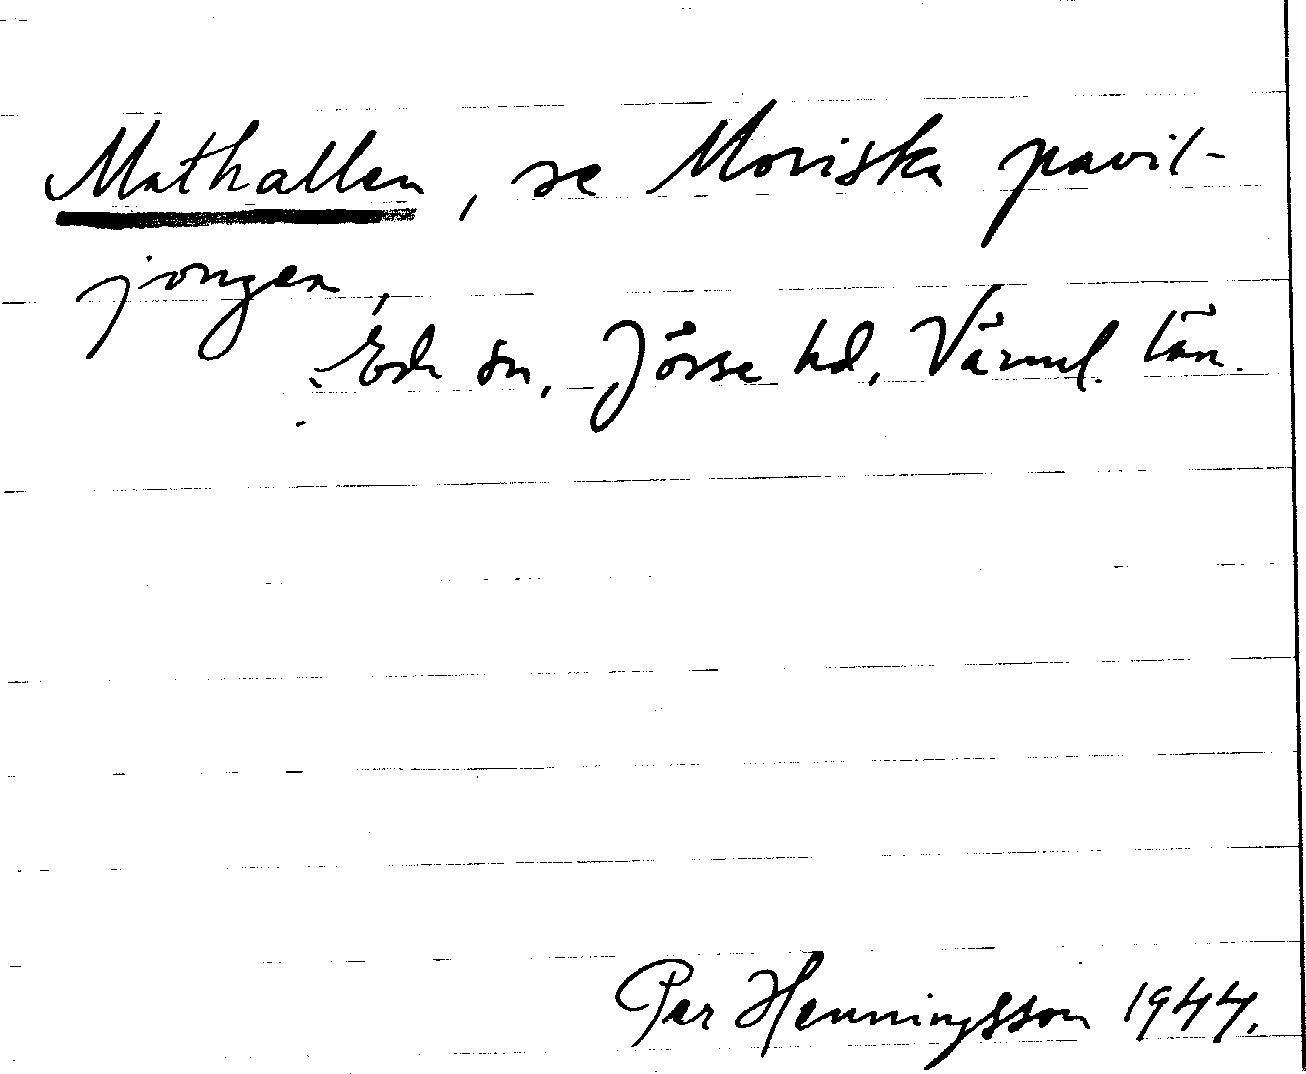 Mathallen, se Moriska pavil-
jongen,
Eda sn, Jösse hd, Värml. län.
Per Henningsson 1944.